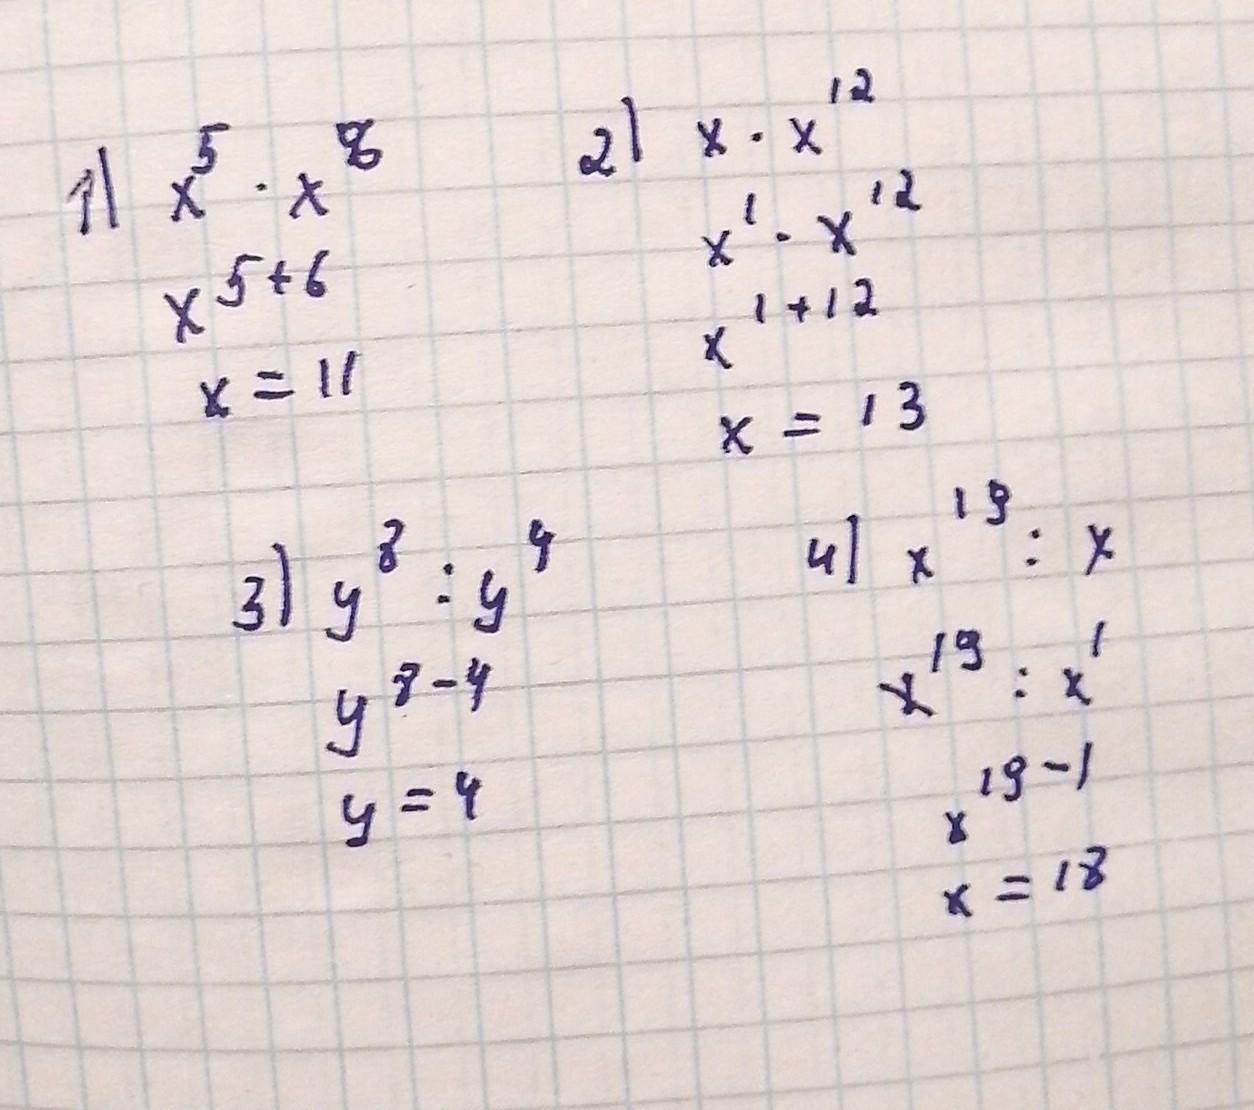 1) x⁵ · x⁸
x⁵⁺⁶
x = 11
2) x · x¹²
x¹ · x¹²
x¹⁺¹²
x = 13
3) y⁸ : y⁴
y⁸⁻⁴
y = 4
4) x¹⁹ : x
x¹⁹ : x¹
x¹⁹⁻¹
x = 18